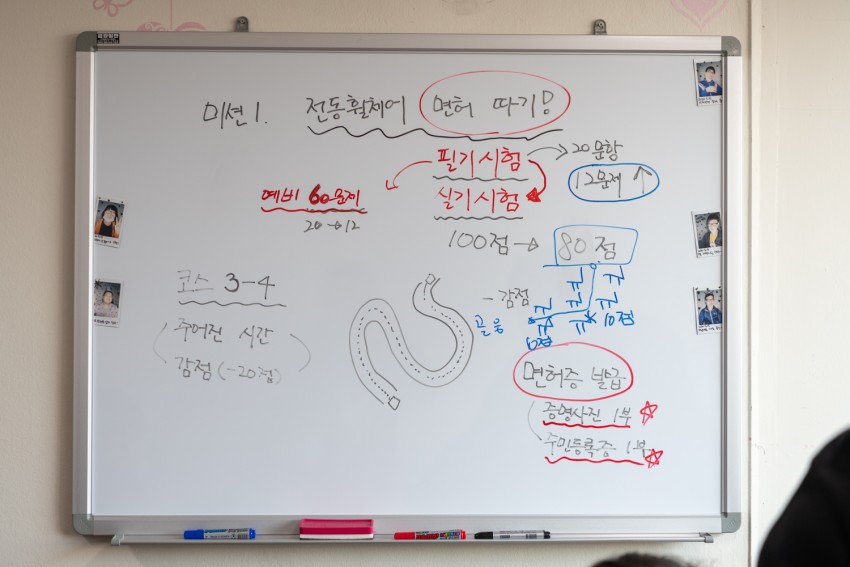 미션 1. 전동휠체어 면허 따기!
필기시험 → 20문항
12문제 ↑
예비 60문제
20 → 12
실기시험
100점 → 80점
-감점
골웅
10점
10점
코스 3-4
주어진 시간
감점(-20점)
면허증 발급
증명사진 1부
주민등록증 1부